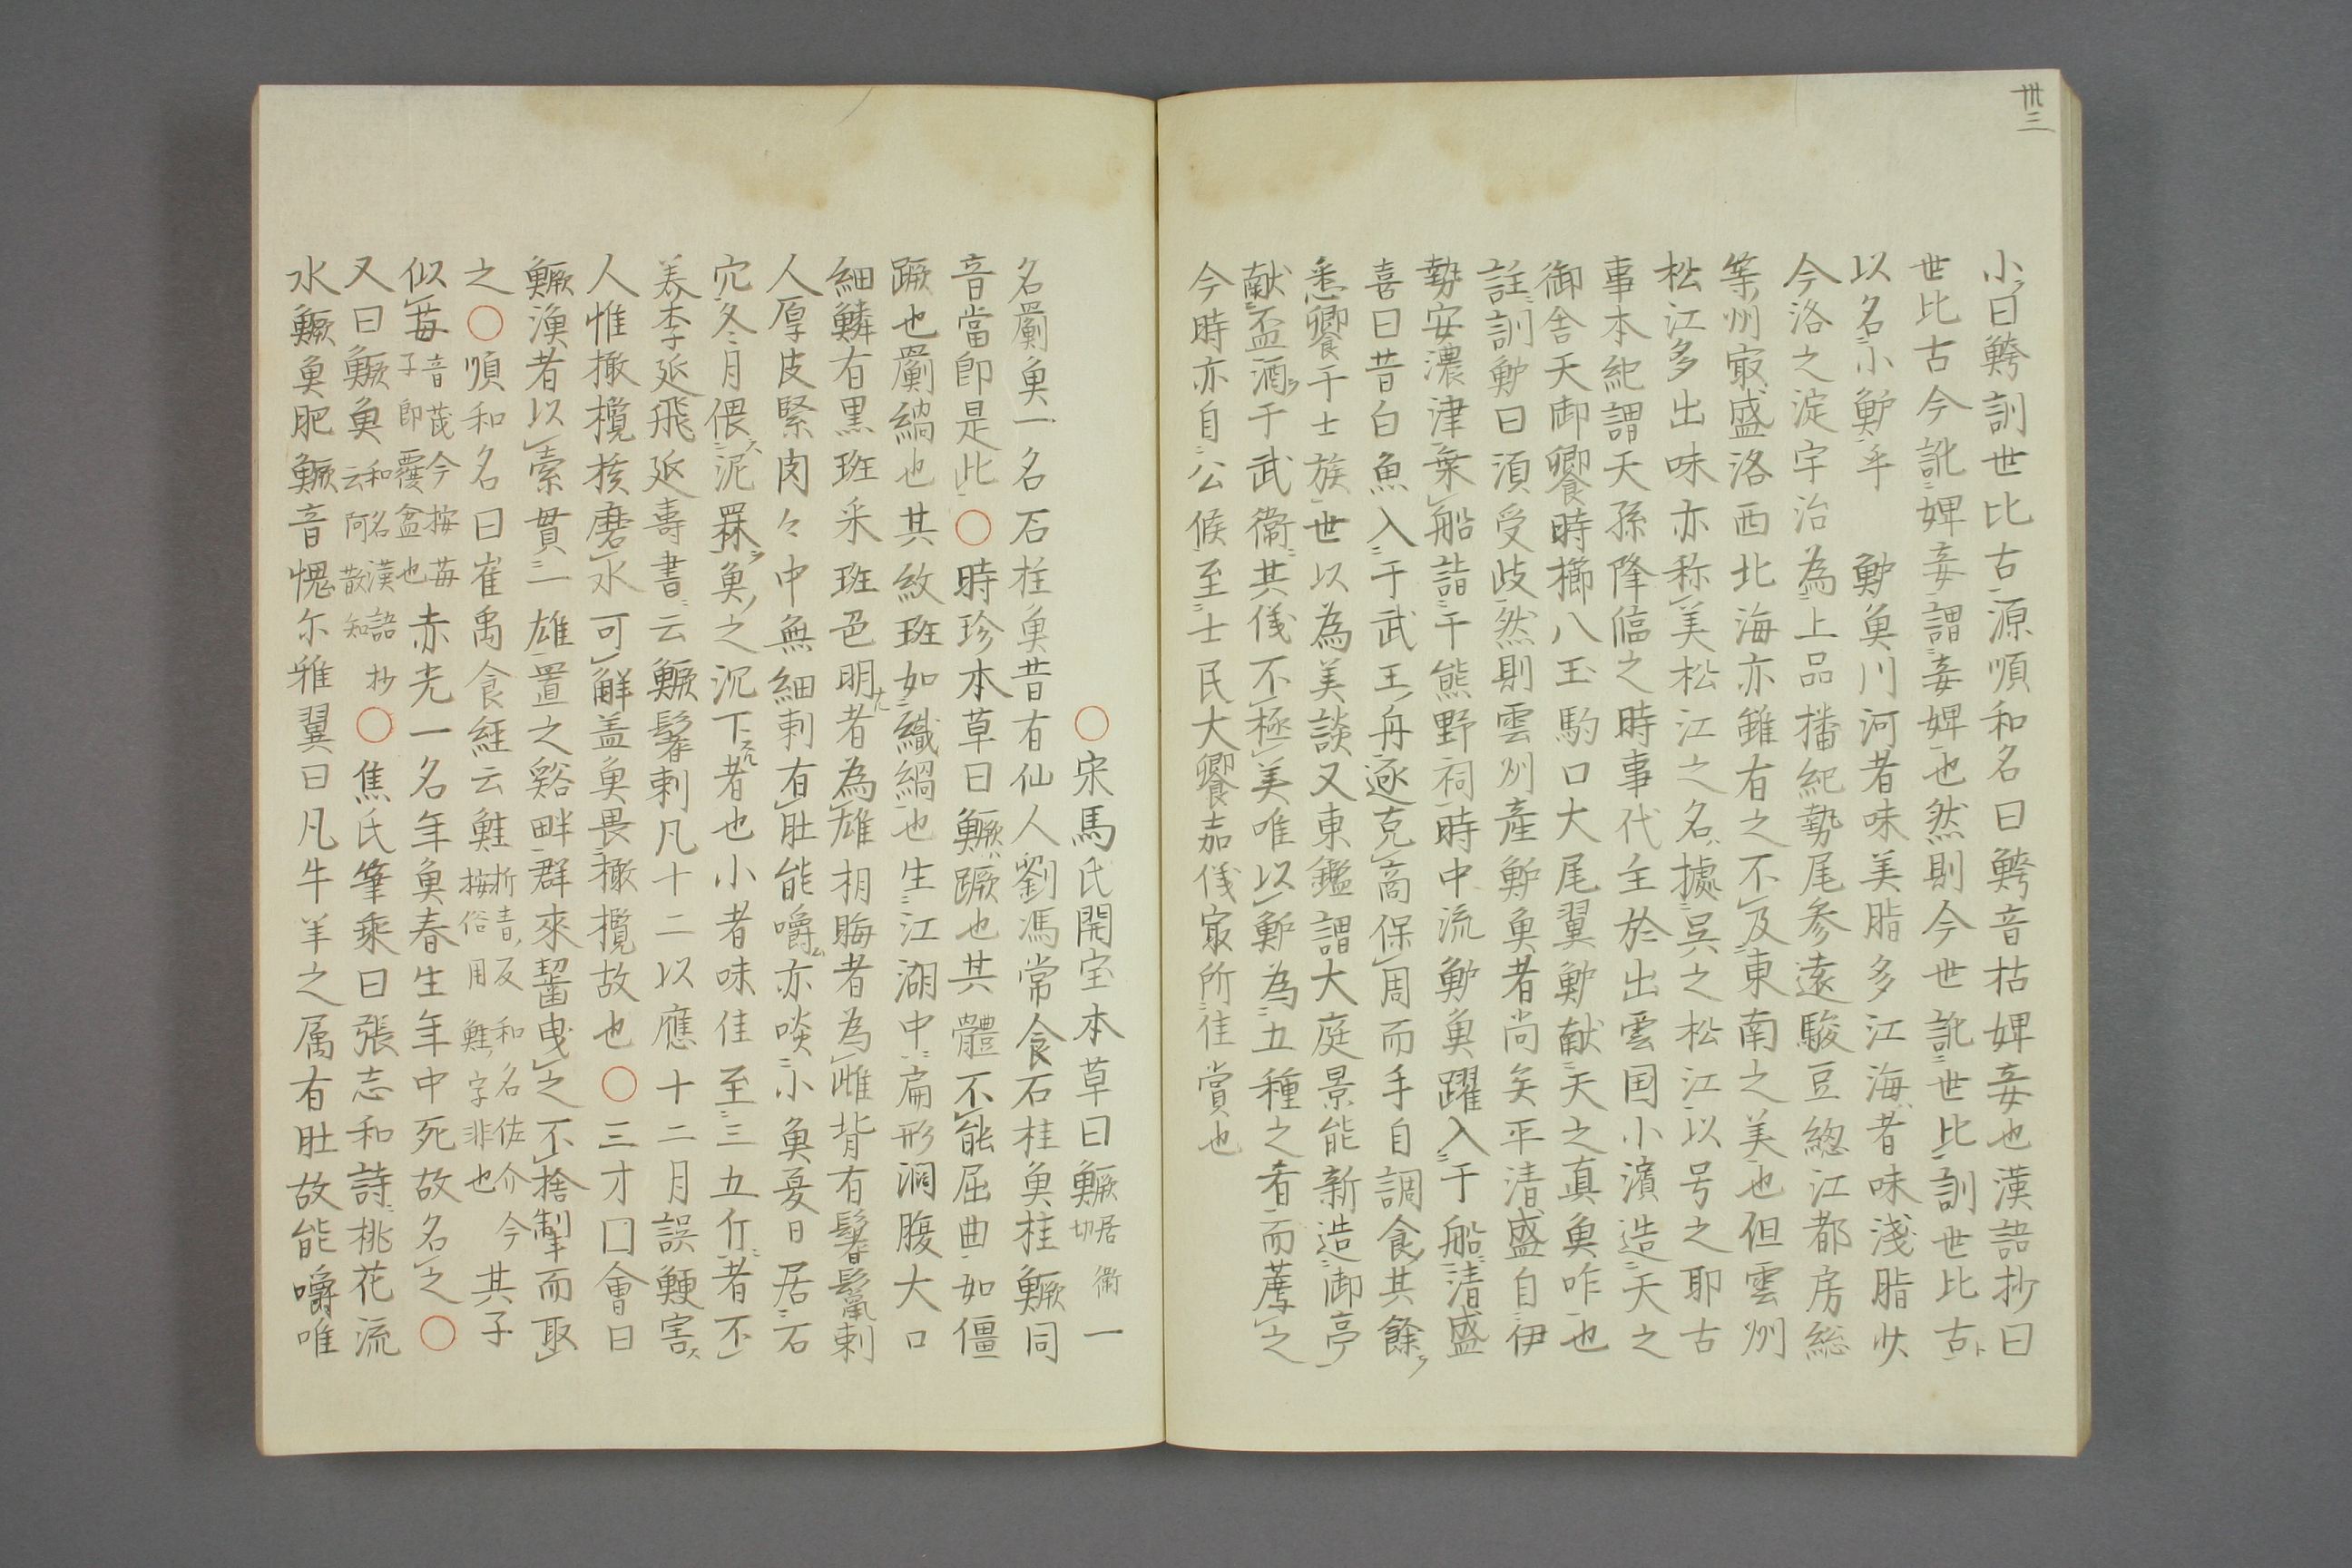 卅三
小曰鮬訓世比古源順和名曰鮬音枯婢妾也漢語抄曰
世比古今訛婢妾謂妾婢也然則今世訛世比訓世比古
以名小鱸乎 鱸魚川河者味美脂多江海者味淺脂少
今洛之淀宇治為上品播紀勢尾参遠駿豆總江都房総
等州㝡盛洛西北海亦雖有之不及東南之美也但雲州
松江多出味亦称美松江之名據呉之松江以号之耶古
事本紀謂天孫降臨之時事代主於出雲国小濱造天之
御舎天御饗時櫛八玉駒口大尾翼鱸献天之真魚咋也
註訓鱸曰須受歧然則雲州産鱸魚者尚矣平清盛自伊
勢安濃津乗船詣于熊野祠時中流鱸魚躍入于船清盛
喜曰昔白魚入于武王舟逐克商保周而手自調食其餘
悉饗于士族世以為美談又東鑑謂大庭景能新造御亭
献盃酒于武衞其儀不極美唯以鱸為五種之肴而薦之
今時亦自公候至士民大饗嘉儀㝡所佳賞也
○宋馬氏開宝本草曰鱖居衞切一
名罽魚一名石桂魚昔有仙人劉馮常食石桂魚桂鱖同
音當即是此○時珍本草曰鱖蹶也其體不能屈曲如僵
蹶也罽䌿也其紋班如織䌿也生江湖中扁形濶腹大口
細鱗有黒班采班色明者為雄梢晦者為雌背有鬐鬣刺
人厚皮緊肉々中無細刺有肚能嚼亦啖小魚夏日居石
穴冬月偎泥罧魚之沉下者也小者味佳至三五斤者不
美李延飛延壽書云鱖鬐刺凡十二以應十二月誤鯁害
人惟橄欖核磨水可觧盖魚畏橄欖故也○三才囗會曰
鱖漁者以索貫一雄置之谿畔群來齧曳之不捨掣而取
之○順和名曰崔禹食経云鮭折青反和名佐介今按俗用鮭字非也其子
似苺音茂今按苺子即覆盆也赤光一名年魚春生年中死故名之○
又曰鱖魚和名漢語抄云阿散知○焦氏筆乘曰張志和詩桃花流
水鱖魚肥鱖音愧尓雅翼曰凡牛羊之属有肚故能嚼唯